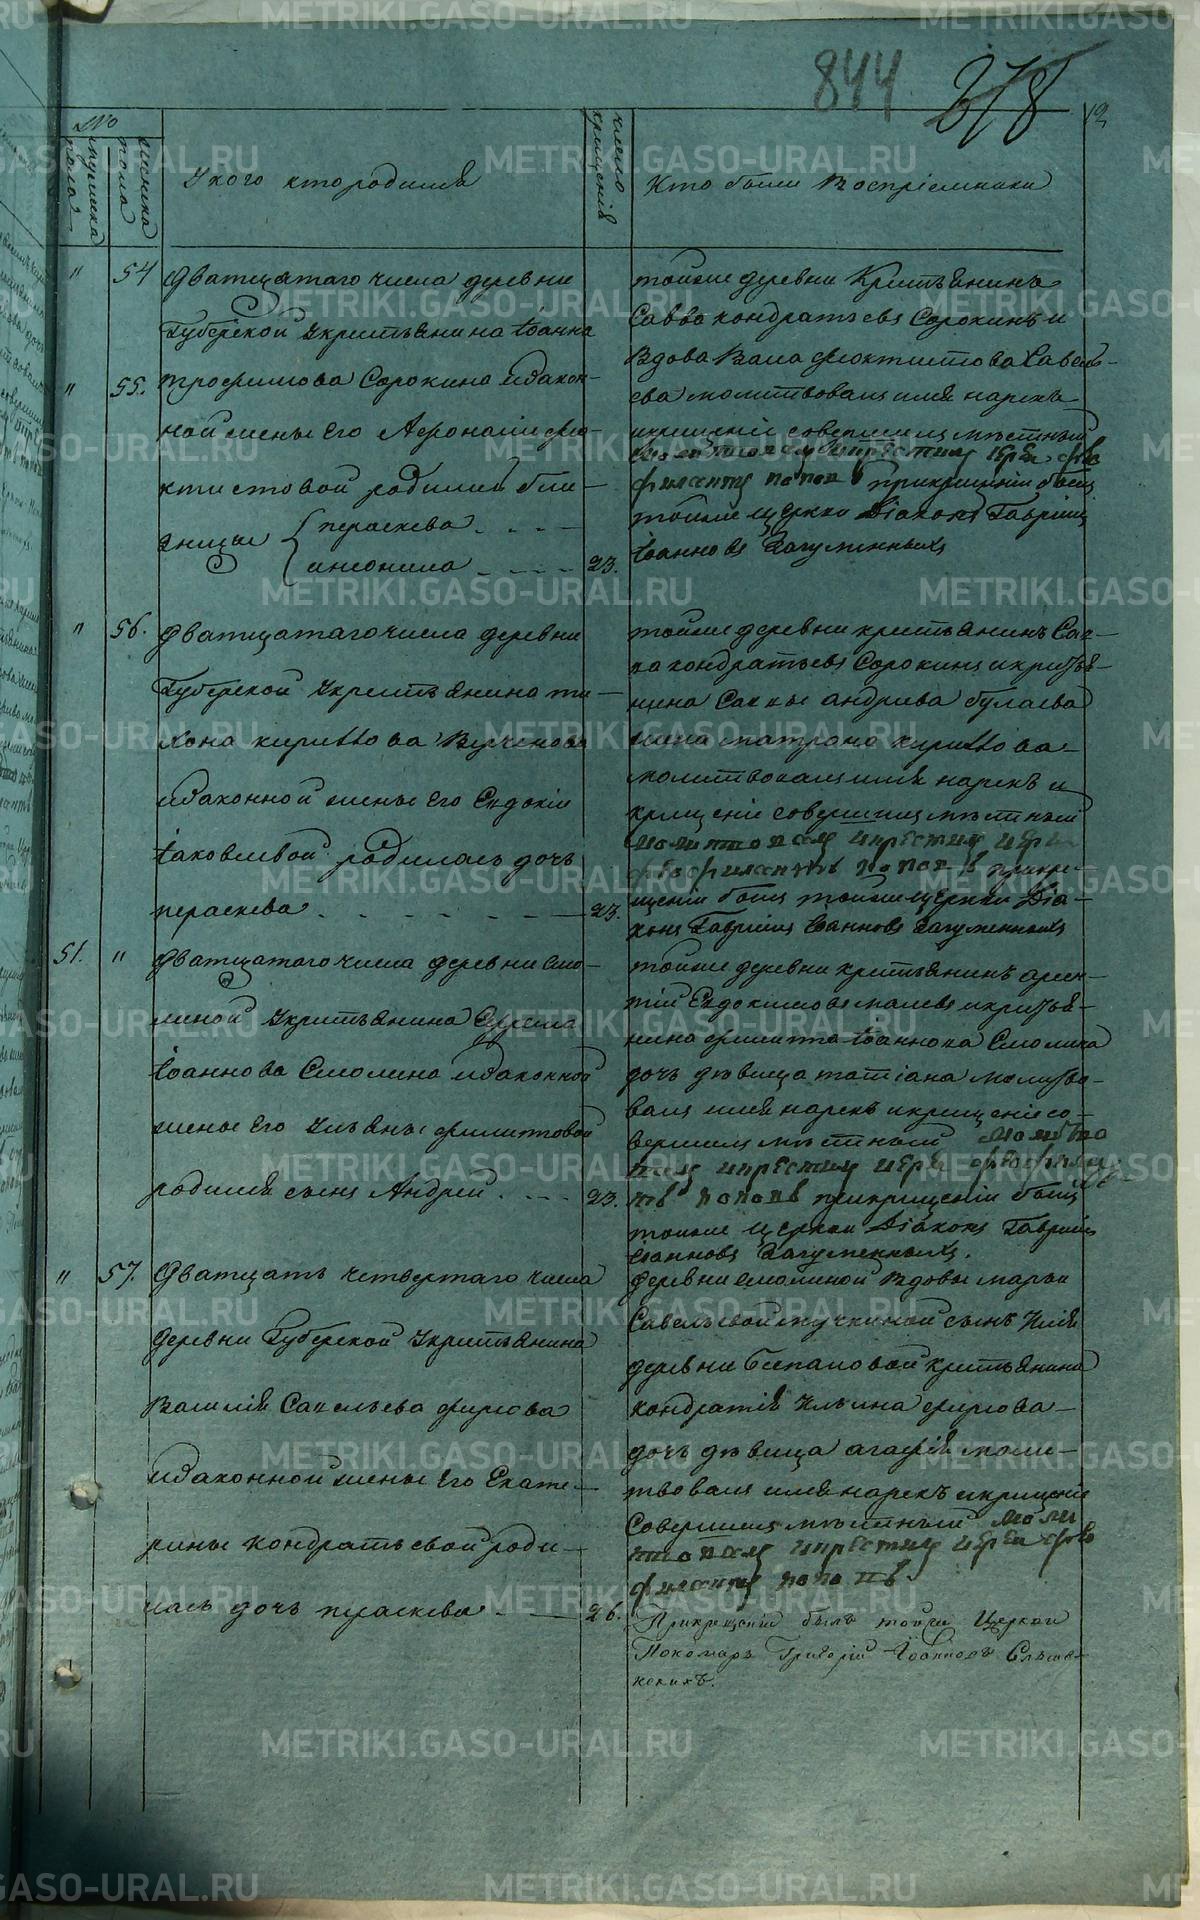 844 278
12
№
мужеска пола
женска пола
У кого кто родился
число крещенія
Кто были Воспріемники
" 54 Дватцатаго числа деревни
Губерской укрестьянина Іоанна
" 55. трофимова Сорокина изакон-
ной жены Его Афонасіи фео-
ктистовой родились близ-
ницы { параскева
антонина 23.
тойже деревни Крестьянинъ
Савва кондратьевъ Сорокинъ и
Вдова феоктистова Савель-
ева молитвовалъ имя нарекъ
икрещеніе совершилъ мѣстный
молитвовалъ икрестилъ іерей фео
филактъ поповъ прикрещеніи былъ
тойже церкви Діаконъ Гавріилъ
Іоанновъ Загуменныхъ
" 56. дватцатаго числа деревни
Губерской укрестьянина ти-
хона кирилова
изаконной жены Его Евдокіи
Іаковлевой родилась дочь
параскева 23.
тойже деревни крестьянинъ Сав-
ва кондратьевъ Сорокинъ икрестья-
нина Саввы андреева булаева
жена матрона кирилова
молитвовалъ имя нарекъ и
крещеніе совершилъ мѣстный
молитвовалъ икрестилъ іерей
феофилактъ поповъ прикре-
щеніи былъ тойже церкви Діа-
конъ Гавріилъ Іоанновъ Загуменныхъ
51. " Дватцатаго числа деревни Смо-
линой укрестьянина Ефрема
Іоаннова Смолина изаконной
жены Его Ульяны филиповой
родился сынъ Андрей 23.
тойже деревни крестьянинъ арсен-
тій Евдокимовъ икрестья-
нина филиппа Іоаннова Смолина
дочь дѣвица татіана молитво-
валъ имя нарекъ икрещеніе со-
вершилъ мѣстный молитво
валъ икрестилъ іерей феофилак
тъ поповъ прикрещеніи былъ
тойже церкви Діаконъ Гавріилъ
Іоанновъ Загуменныхъ.
" 57. Дватцать четвертаго числа
деревни Губерской укрестьянина
Василія Савельева фирсова
изаконной жены Его Екате-
рины кондратьевой роди-
лась дочь параскева 26.
деревни смолиной Вдовы марьи
Савельевой сынъ Илія
деревни Беспаловой крестьянина
кондратія Ильина фирсова
дочь дѣвица агафія моли-
твовалъ имя нарекъ икрещеніе
Совершилъ мѣстный моли
твовалъ икрестилъ іерей фео
филактъ поповъ.
Прикрещеніи былъ тойже Церкви
Пономарь Григорій Іоанновъ